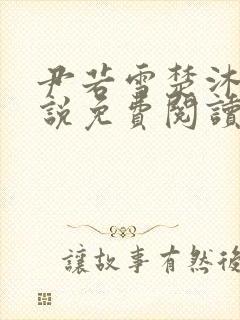 尹若雪楚沐
說免費閱讀
讓故事有然後